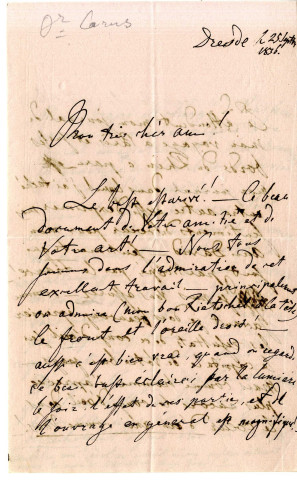 Dr Carus
Dresde le 25
1836.
Mon très cher ami!
Le buste est arrivé! — Ce beau
document de votre amitié et de
votre art! — Nous tous
sommes dans l'admiration de cet
excellent travail — principalement
on admire (mon bon Rietschel) la tête
le front et l'oreille droite —
aussi c'est bien vrai, quand on regarde
ce beau buste éclairé par la lumière
le soir l'effet de ces parties et de
l'ouvrage en général est magnifique!